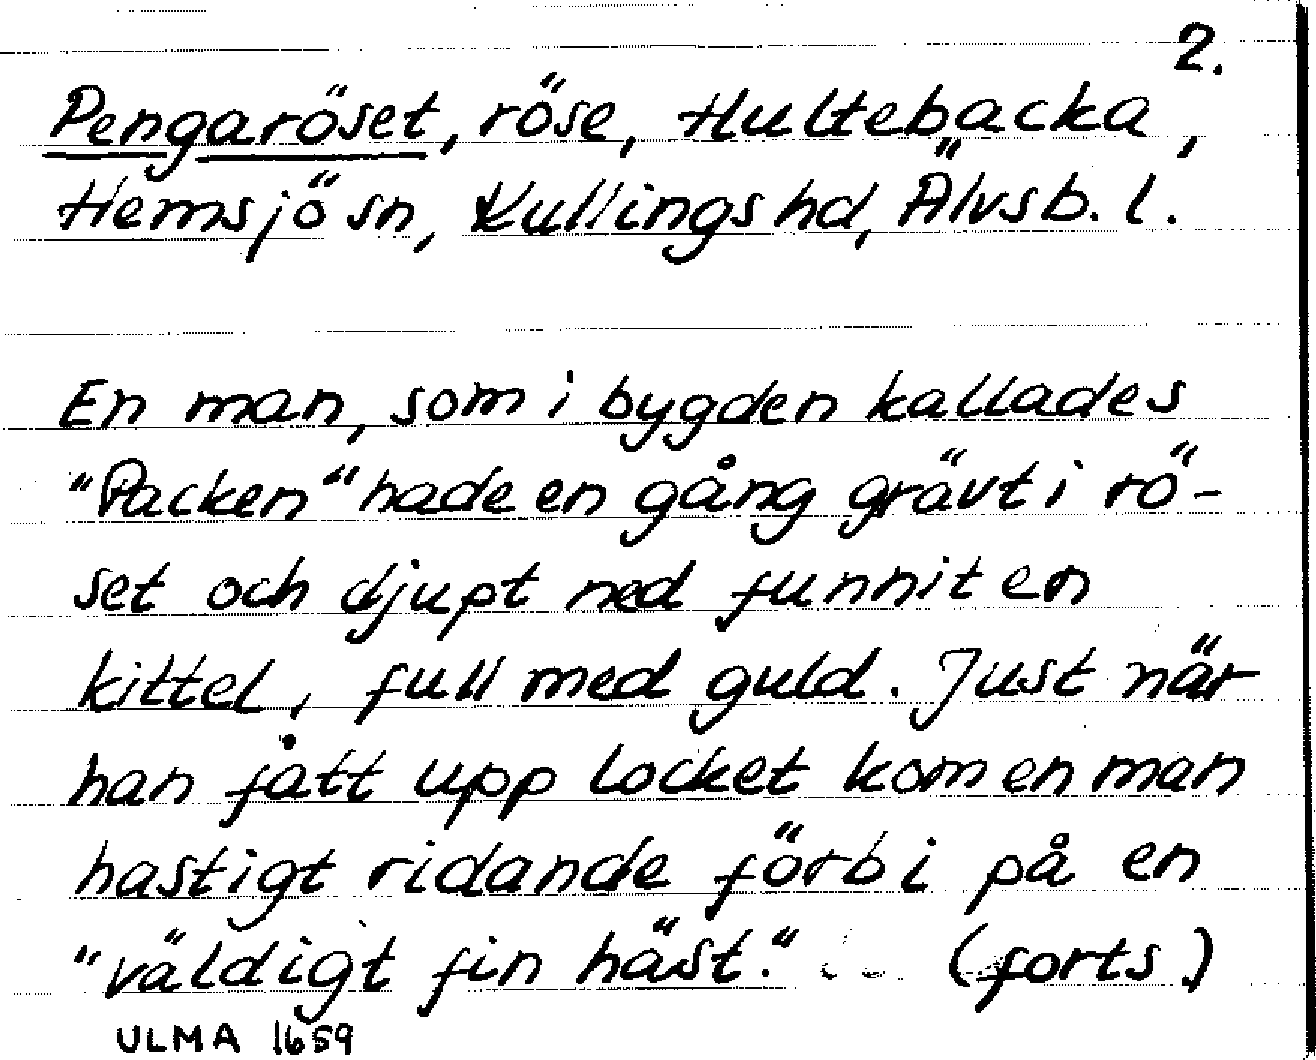 2.
Pengaröset, röse, Hultebacka,
Hemsjö sn, Kullings hd, Älvsb. l.
En man, som i bygden kallades
"Packen" hade en gång grävt i rö-
set och djupt ned funnit en
kittel, full med guld. Just när
han fått upp locket kom en man
hastigt ridande förbi på en
"väldigt fin häst." (forts.)
ULMA 1659